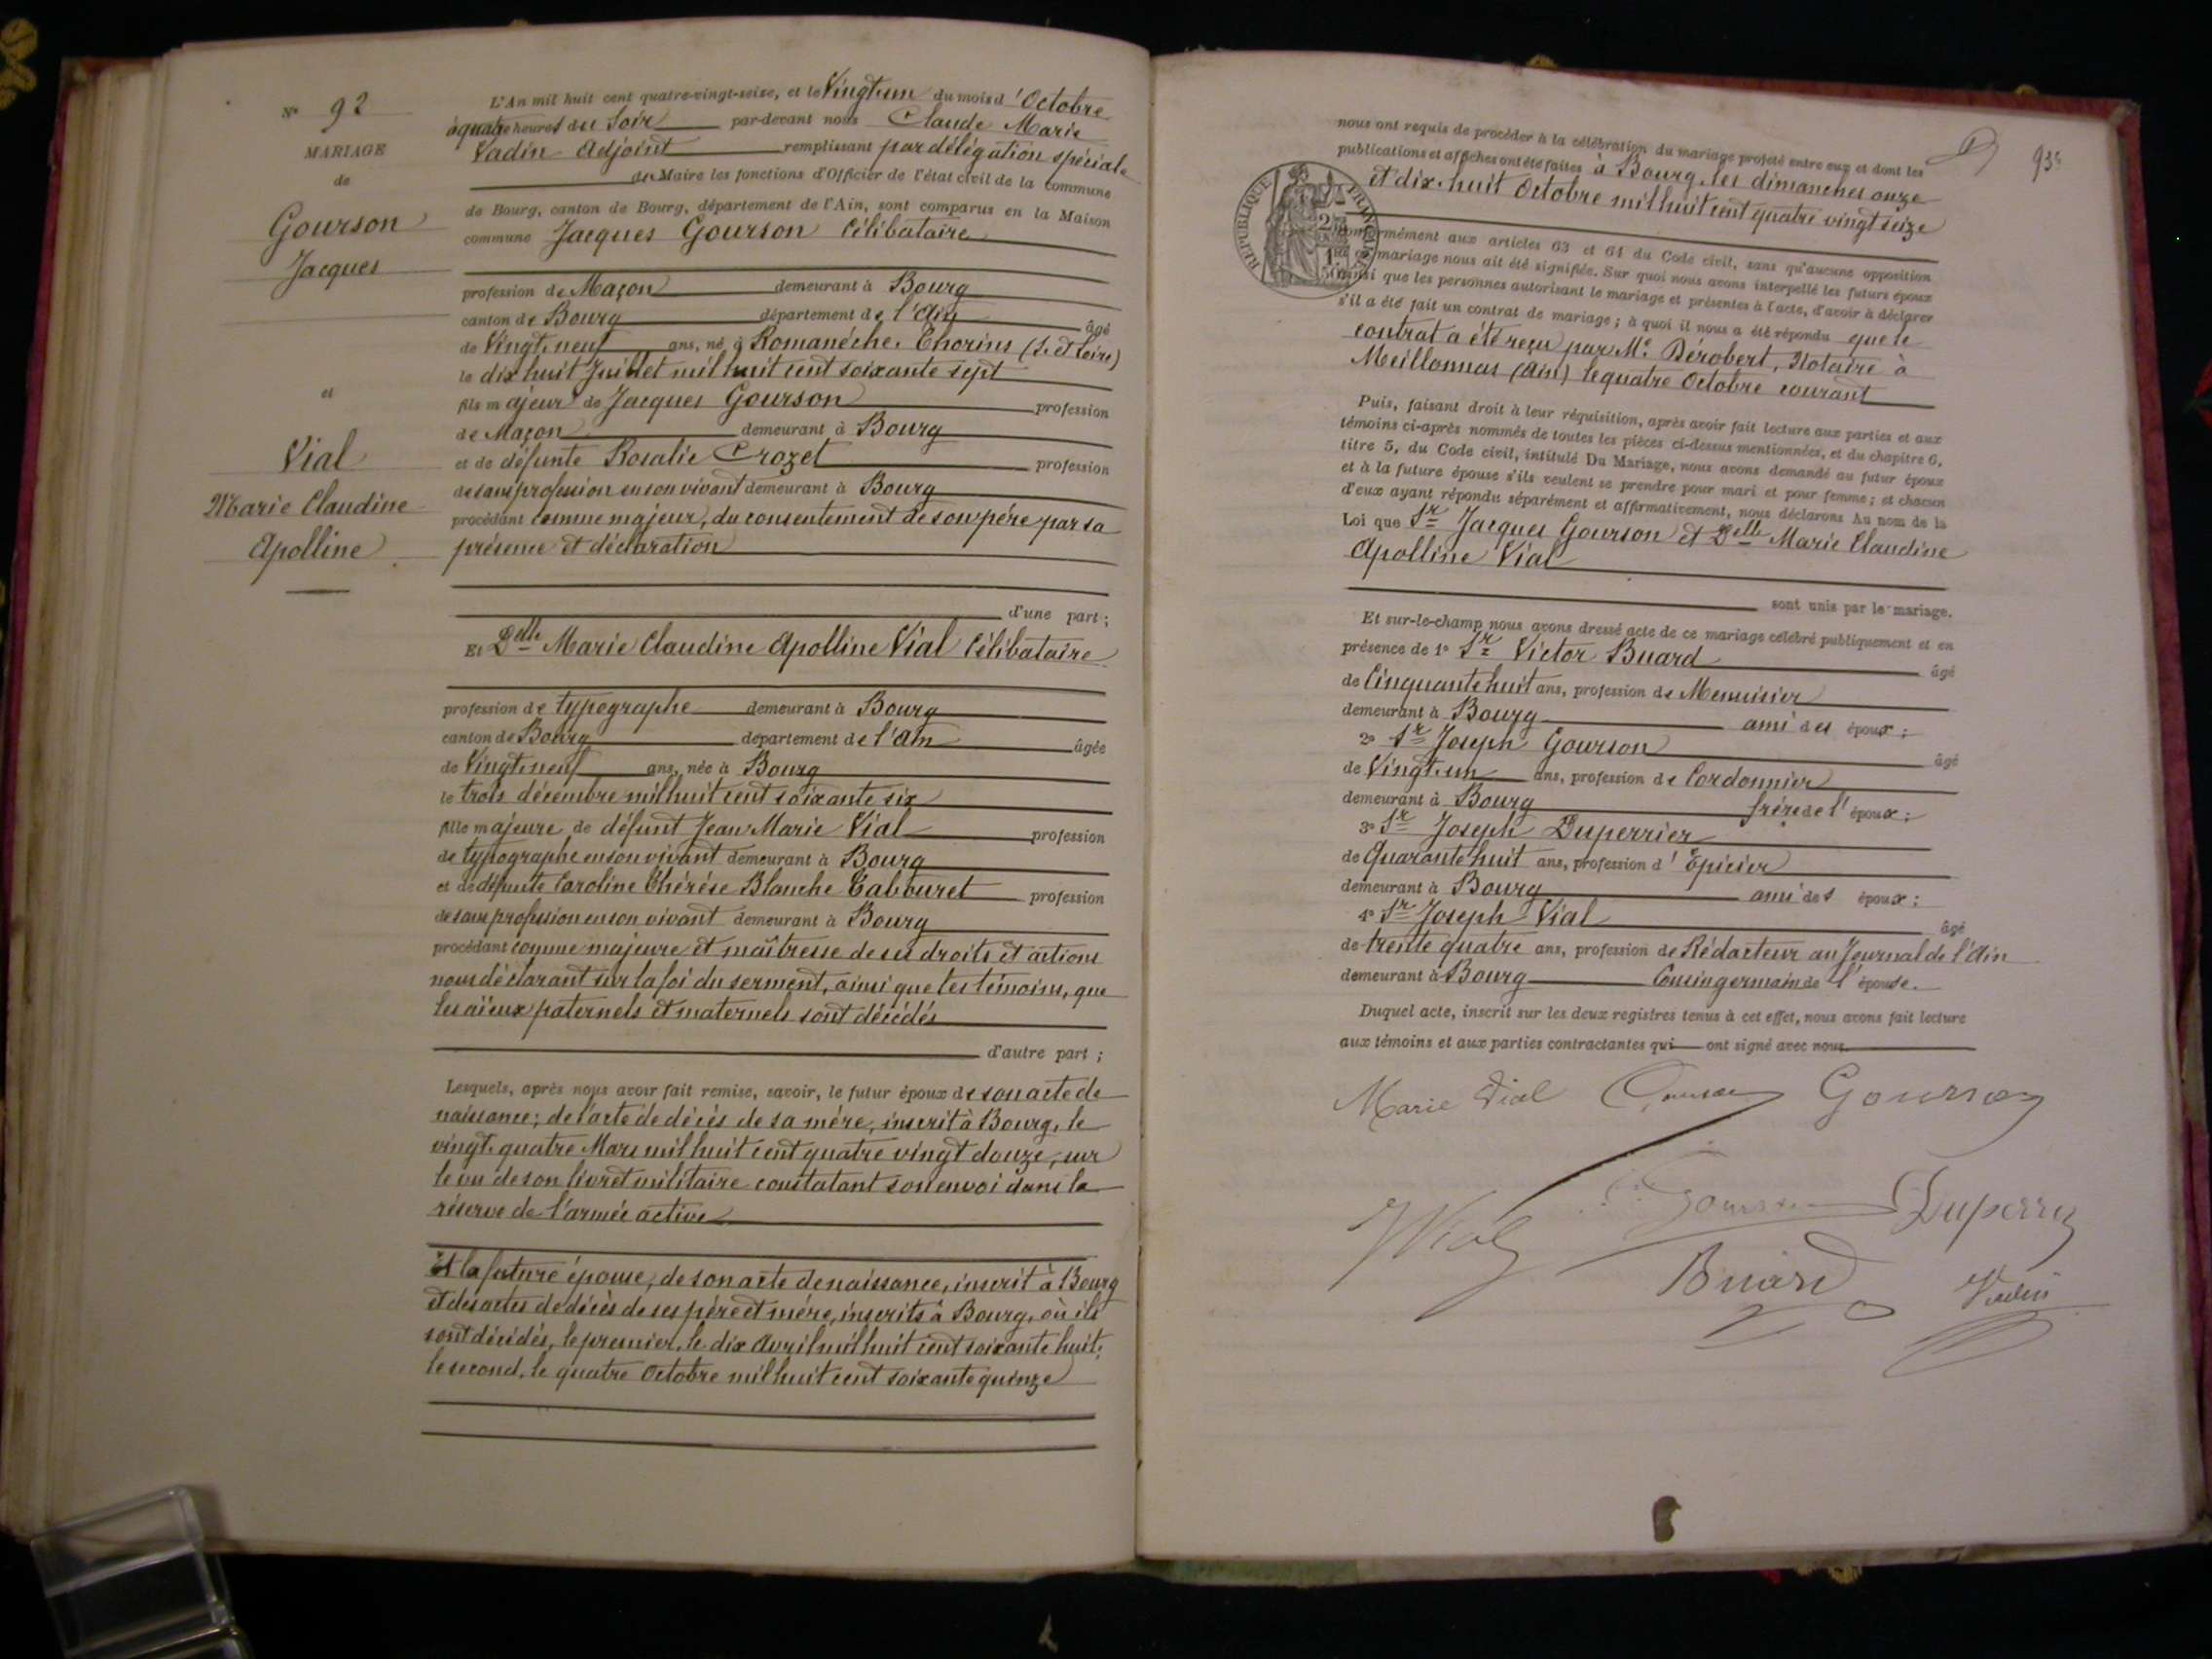 N° 92
MARIAGE
de
Gourson
Jacques
et
Vial
Marie Claudine
Apolline
L'An mil huit cent quatre-vingt-seize, et le Vingt-un du mois d'Octobre
à quatre heures du Soir par-devant nous Claude Marie
Vadin Adjoint remplissant par délégation spéciale
du Maire les fonctions d'Officier de l'état civil de la commune
de Bourg, canton de Bourg, département de l'Ain, sont comparus en la Maison
commune Jacques Gourson Célibataire
profession de Maçon demeurant à Bourg
canton de Bourg département de l'Ain âgé
de Vingt-neuf ans, né à Romanéche-Thorins (S. et Loire)
le dix huit Juillet mil huit cent soixante sept
fils majeur de Jacques Gourson profession
de Maçon demeurant à Bourg
et de défunte Rosalie Crozet profession
de sans profession en son vivant demeurant à Bourg
procédant comme majeur, du consentement de son père par sa
présence et déclaration
d'une part ;
Et Delle Marie Claudine Apolline Vial Célibataire
profession de typographe demeurant à Bourg
canton de Bourg département de l'Ain âgée
de Vingt-neuf ans, née à Bourg
le trois décembre mil huit cent soixante six
fille majeure de défunt Jean Marie Vial profession
de typographe en son vivant demeurant à Bourg
et de défunte Caroline Thérèse Blanche Tabouret profession
de sans profession en son vivant demeurant à Bourg
procédant comme majeure et maîtresse de ses droits et actions
nous déclarant sur la foi du serment, ainsi que les témoins, que
les aïeux paternels et maternels sont décédés
d'autre part ;
Lesquels, après nous avoir fait remise, savoir, le futur époux de son acte de
naissance; de l'acte de décès de sa mère, inscrit à Bourg, le
vingt-quatre Mars mil huit cent quatre vingt douze, sur
le vu de son livret militaire constatant son envoi dans la
réserve de l'armée active
Et la future épouse, de son acte de naissance, inscrit à Bourg
et des actes de décès de ses père et mère, inscrits à Bourg, où ils
sont décédés, le premier, le dix Avril mil huit cent soixante huit;
le second, le quatre Octobre mil huit cent soixante quinze
93e
nous ont requis de procéder à la célébration du mariage projeté entre eux et dont les
publications et affiches ont été faites à Bourg, les dimanches onze
et dix-huit Octobre mil huit cent quatre vingt seize
REPUBLIQUE FRANÇAISE
conformément aux articles 63 et 64 du Code civil, sans qu'aucune opposition
au mariage nous ait été signifiée. Sur quoi nous avons interpellé les futurs époux
ainsi que les personnes autorisant le mariage et présentes à l'acte, d'avoir à déclarer
s'il a été fait un contrat de mariage ; à quoi il nous a été répondu que le
contrat a été reçu par Me. Dérobert, Notaire à
Meillonnas (Ain) le quatre Octobre courant
Puis, faisant droit à leur réquisition, après avoir fait lecture aux parties et aux
témoins ci-après nommés de toutes les pièces ci-dessus mentionnées, et du chapitre 6,
titre 5, du Code civil, intitulé Du Mariage, nous avons demandé au futur époux
et à la future épouse s'ils veulent se prendre pour mari et pour femme ; et chacun
d'eux ayant répondu séparément et affirmativement, nous déclarons Au nom de la
Loi que Sr Jacques Gourson et Delle Marie Claudine
Apolline Vial
sont unis par le mariage.
Et sur-le-champ nous avons dressé acte de ce mariage célébré publiquement et en
présence de 1° Sr Victor Buard âgé
de Cinquante huit ans, profession de Menuisier
demeurant à Bourg ami des époux ;
2° Sr Joseph Gourson âgé
de Vingt-un ans, profession de Cordonnier
demeurant à Bourg frère de l'époux ;
3° Sr Joseph Duperrier
de Quarante huit ans, profession d'Epicier
demeurant à Bourg ami des époux ;
4° Sr Joseph Vial âgé
de trente quatre ans, profession de Rédacteur au Journal de l'Ain
demeurant à Bourg Cousin germain de l'épouse.
Duquel acte, inscrit sur les deux registres tenus à cet effet, nous avons fait lecture
aux témoins et aux parties contractantes qui ont signé avec nous.
Marie Vial Gourson Gourson
JVial Gourson Duperrier
Buard Vadin